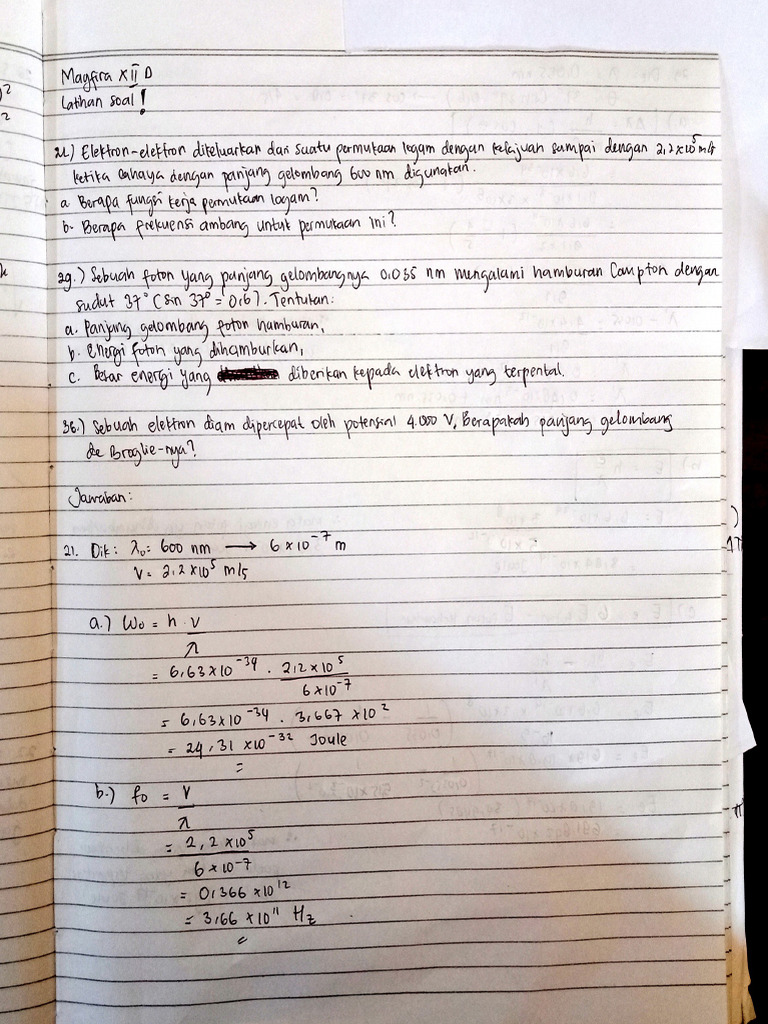 Magfira XII D
Latihan soal!
21.) Elektron-elektron dikeluarkan dari suatu permukaan logam dengan kelajuan sampai dengan 2,2×10⁵ m/s
ketika cahaya dengan panjang gelombang 600 nm digunakan.
a. Berapa fungsi kerja permukaan logam?
b. Berapa frekuensi ambang untuk permukaan ini?
29.) Sebuah foton yang panjang gelombangnya 0,035 nm mengalami hamburan Compton dengan
sudut 37° (sin 37° = 0,6). Tentukan:
a. Panjang gelombang foton hamburan,
b. Energi foton yang dihamburkan,
c. Besar energi yang diberikan kepada elektron yang terpental.
36.) Sebuah elektron diam dipercepat oleh potensial 4.000 V, Berapakah panjang gelombang
de Broglie-nya?
Jawaban:
21. Dik: λ₀: 600 nm → 6 × 10⁻⁷ m
V = 2,2 × 10⁵ m/s
a.) W₀ = h . v
λ
= 6,63 × 10⁻³⁴ . 2,2 × 10⁵
6 × 10⁻⁷
= 6,63 × 10⁻³⁴ . 3,667 × 10²
= 24,31 × 10⁻³² Joule
b.) f₀ = v
λ
= 2,2 × 10⁵
6 × 10⁻⁷
= 0,366 × 10¹²
= 3,66 × 10¹¹ Hz